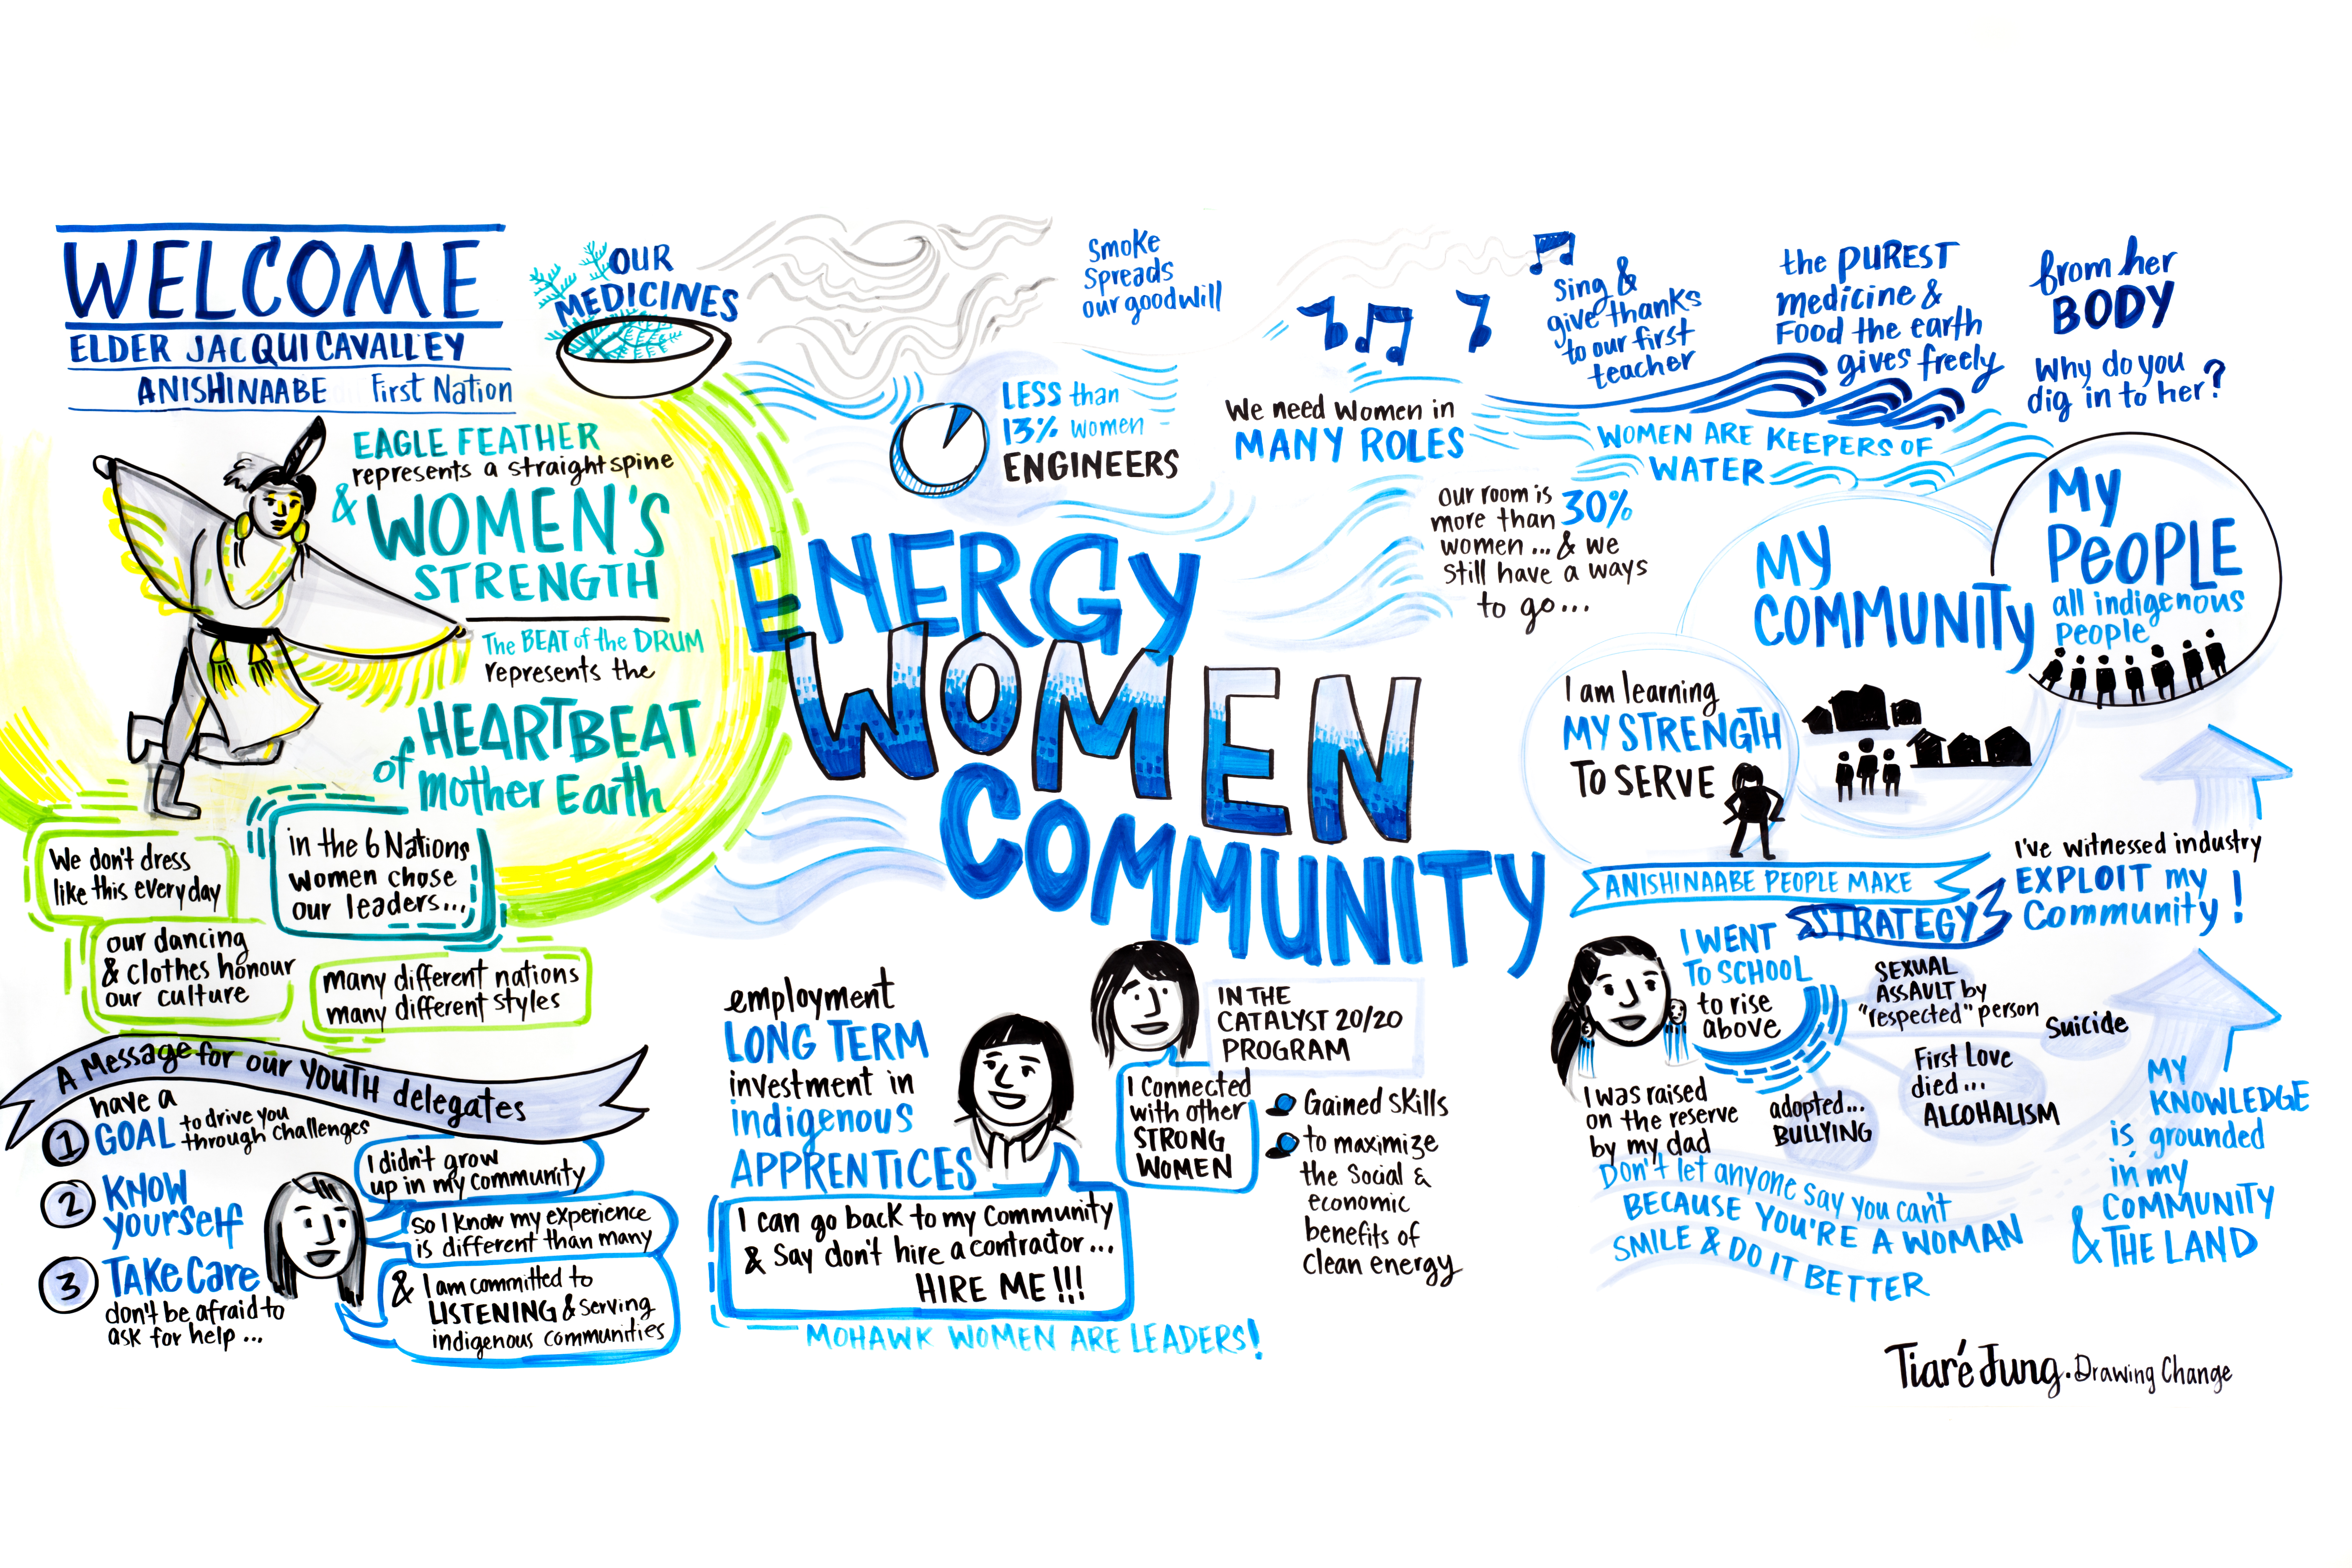 WELCOME
ELDER JACQUI CAVALLEY
ANISHINAABE First Nation
EAGLE FEATHER
represents a straight spine
& WOMEN'S
STRENGTH
The BEAT of the DRUM
represents the
HEARTBEAT
of mother Earth
OUR
MEDICINES
Smoke
Spreads
our goodwill
Sing &
give thanks
to our first
teacher
the PUREST
medicine &
Food the earth
gives freely
from her
BODY
Why do you
dig in to her?
LESS than
13% women
ENGINEERS
We need women in
MANY ROLES
WOMEN ARE KEEPERS OF
WATER
our room is
more than 30%
women ... & we
still have a ways
to go...
ENERGY
WOMEN
COMMUNITY
My
PEOPLE
all indigenous
people
MY
COMMUNITY
I am learning
MY STRENGTH
TO SERVE
ANISHINAABE PEOPLE MAKE
STRATEGY
I've witnessed industry
EXPLOIT my
Community!
We don't dress
like this every day
in the 6 Nations
women chose
our leaders...
our dancing
& clothes honour
our culture
many different nations
many different styles
A Message for our YOUTH delegates
1 have a
GOAL to drive you
through challenges
2 KNOW
yourself
3 TAKE Care
don't be afraid to
ask for help ...
I didn't grow
up in my community
so I know my experience
is different than many
& I am committed to
LISTENING & serving
indigenous communities
employment
LONG TERM
investment in
indigenous
APPRENTICES
I can go back to my Community
& Say don't hire a contractor...
HIRE ME!!!
MOHAWK WOMEN ARE LEADERS!
IN THE
CATALYST 20/20
PROGRAM
I Connected
with other
STRONG
WOMEN
Gained skills
to maximize
the Social &
economic
benefits of
clean energy
I WENT
TO SCHOOL
to rise
above
SEXUAL
ASSAULT by
"respected" person
Suicide
First Love
died...
ALCOHALISM
adopted...
BULLYING
I was raised
on the reserve
by my dad
Don't let anyone say you can't
BECAUSE YOU'RE A WOMAN
SMILE & DO IT BETTER
MY
KNOWLEDGE
is grounded
in my
COMMUNITY
& THE LAND
Tiaré Jung. Drawing Change